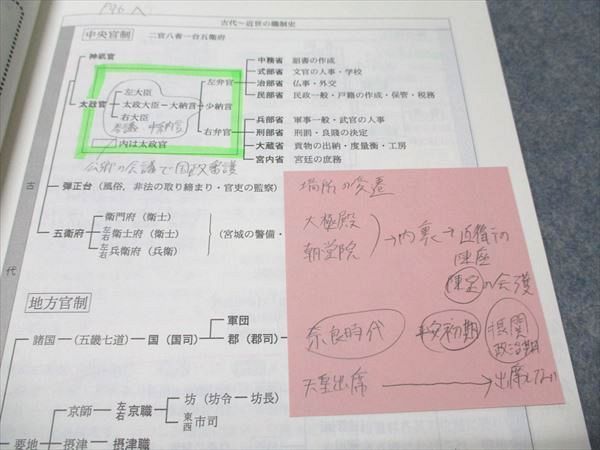 P96へ
古代〜近世の職制史
中央官制 二官八省一台五衛府
神祇官
太政官
左大臣
太政大臣－大納言
右大臣
参議・中納言
内は太政官
左弁官
少納言
右弁官
公卿の会議で国政審議
中務省 詔書の作成
式部省 文官の人事・学校
治部省 仏事・外交
民部省 民政一般・戸籍の作成・保管・税務
兵部省 軍事一般・武官の人事
刑部省 刑罰・良賤の決定
大蔵省 貢物の出納・度量衡・工房
宮内省 宮廷の庶務
古
代
弾正台（風俗，非法の取り締まり・官吏の監察）
五衛府
衛門府（衛士）
左右衛士府（衛士）
左右兵衛府（兵衛）
（宮城の警備・
地方官制
諸国－（五畿七道）－国（国司）
軍団
郡（郡司）
要地
京師－左右京職
坊（坊令－坊長）
東西市司
摂津－摂津職
場所の変遷
大極殿
朝堂院
→内裏→近衛府の
陣座
陣定の会議
奈良時代
平安初期
摂関
政治期
天皇出席 → 出席しない